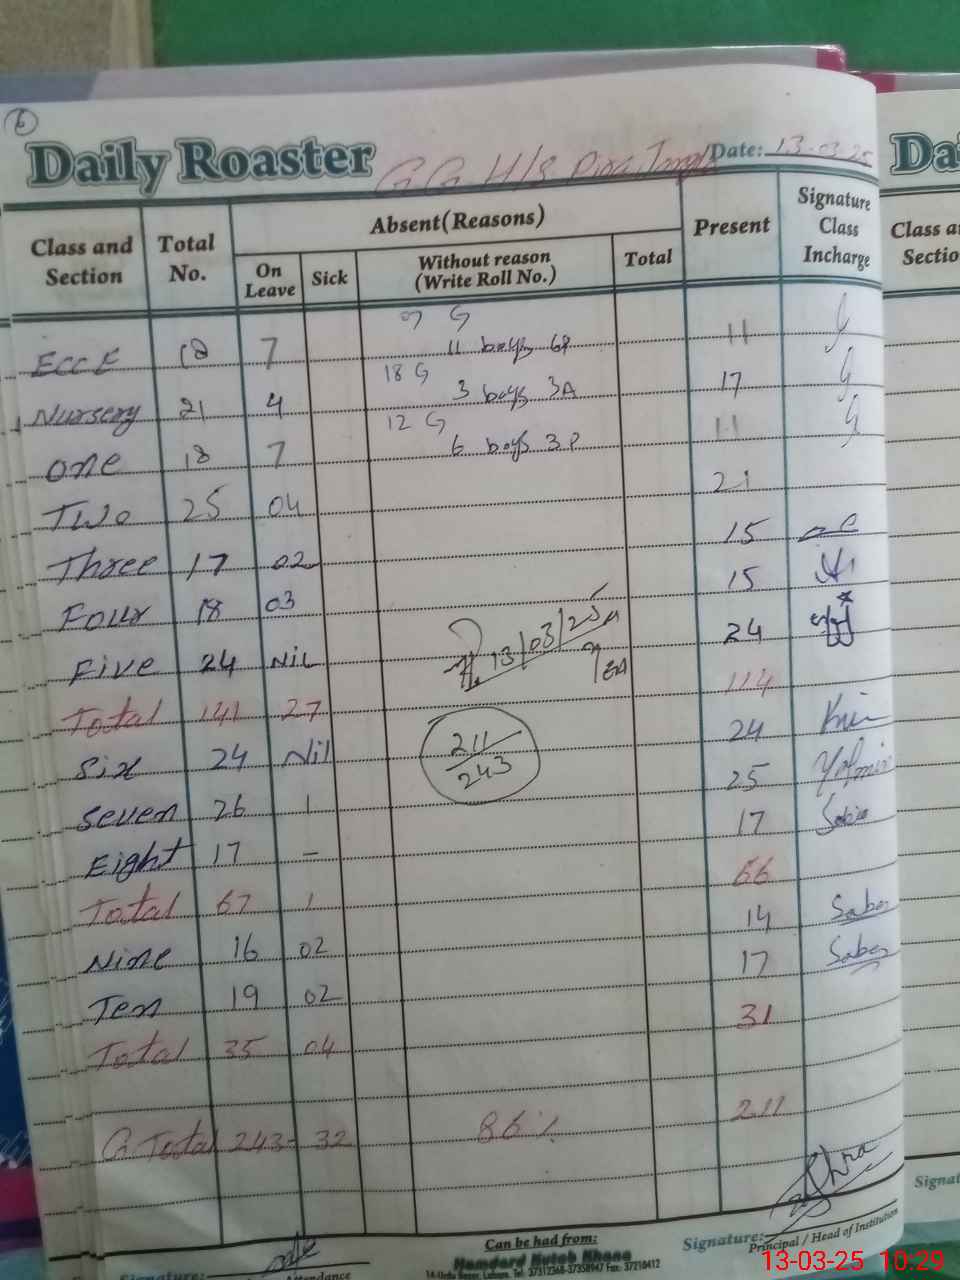 6
Daily Roaster
G G H/S
Date: 13-03-25
Da
Class and Section
Total No.
Absent(Reasons)
On Leave
Sick
Without reason (Write Roll No.)
Total
Present
Signature Class Incharge
07 G
ECCE 18 7 11 boys 11
18 G
Nursery 21 4 3 boys 3A 17
12 G
One 18 7 6 boys 3P 11
Two 25 04 21
Three 17 02 15
Four 18 03 15
Five 24 Nil 24
13/03/25
Total 141 27 114
Six 24 Nil 24
211/243
Seven 26 1 25
Eight 17 – 17
Total 67 1 66
Nine 16 02 14 Saba
Ten 19 02 17 Saba
Total 35 04 31
G. Total 243 - 32 86% 211
Signature:
Attendance
Can be had from:
Hamdard Kutab Khana
14-Urdu Bazar, Lahore. Tel: 37312368-37358947 Fax: 37210412
Signature:
Principal / Head of Institution
13-03-25 10:29